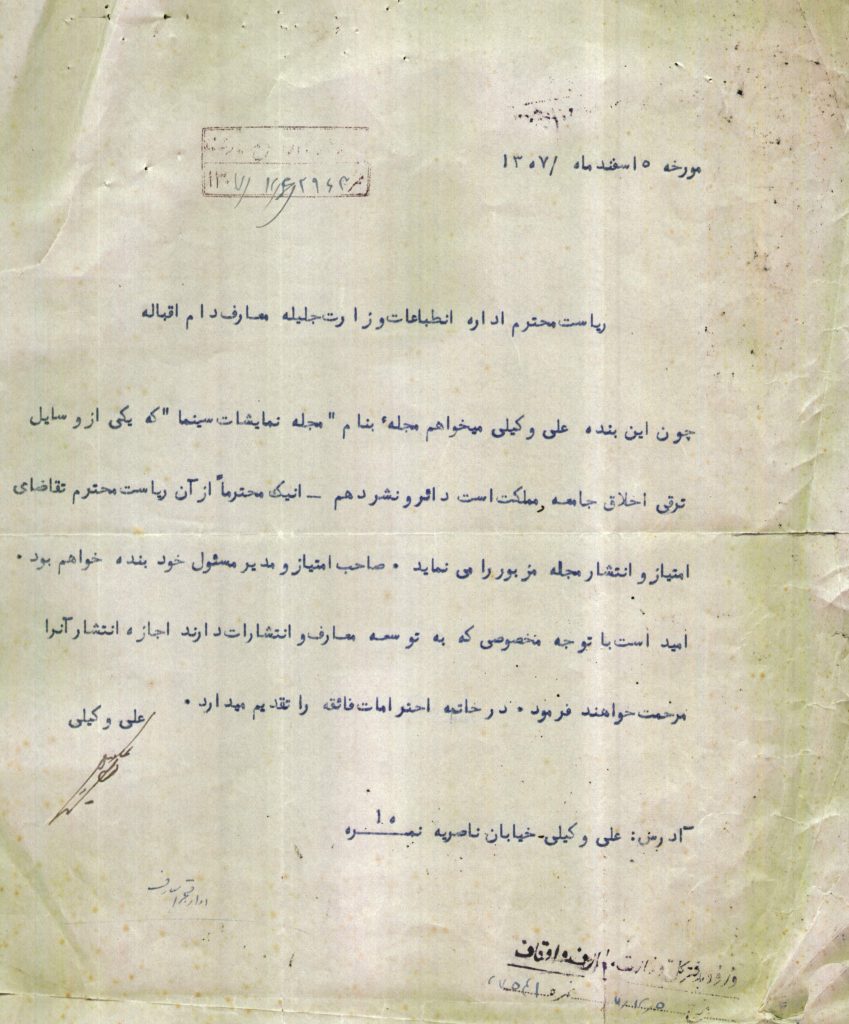 مورخه ۵ اسفند ماه /۱۳۰۷
نمره ۲۹۶۴
ریاست محترم اداره انطباعات وزارت جلیله معارف دام اقباله
چون این بنده علی وکیلی میخواهم مجلهٔ بنام "مجله نمایشات سینما" که یکی از وسایل
ترقی اخلاق جامعه مملکت است دائر و نشر دهم ــ انیک محترماً از آن ریاست محترم تقاضای
امتیاز و انتشار مجله مزبور را می نماید ۰ صاحب امتیاز و مدیر مسئول خود بنده خواهم بود ۰
امید است با توجه مخصوصی که به توسعه معارف و انتشارات دارند اجازه انتشار آنرا
مرحمت خواهند فرمود ۰ در خاتمه احترامات فائقه را تقدیم میدارد ۰
علی وکیلی
آدرس: علی وکیلی۔ خیابان ناصریه نمــره ۱۵
ورود بدفتر کل وزارت معارف و اوقاف